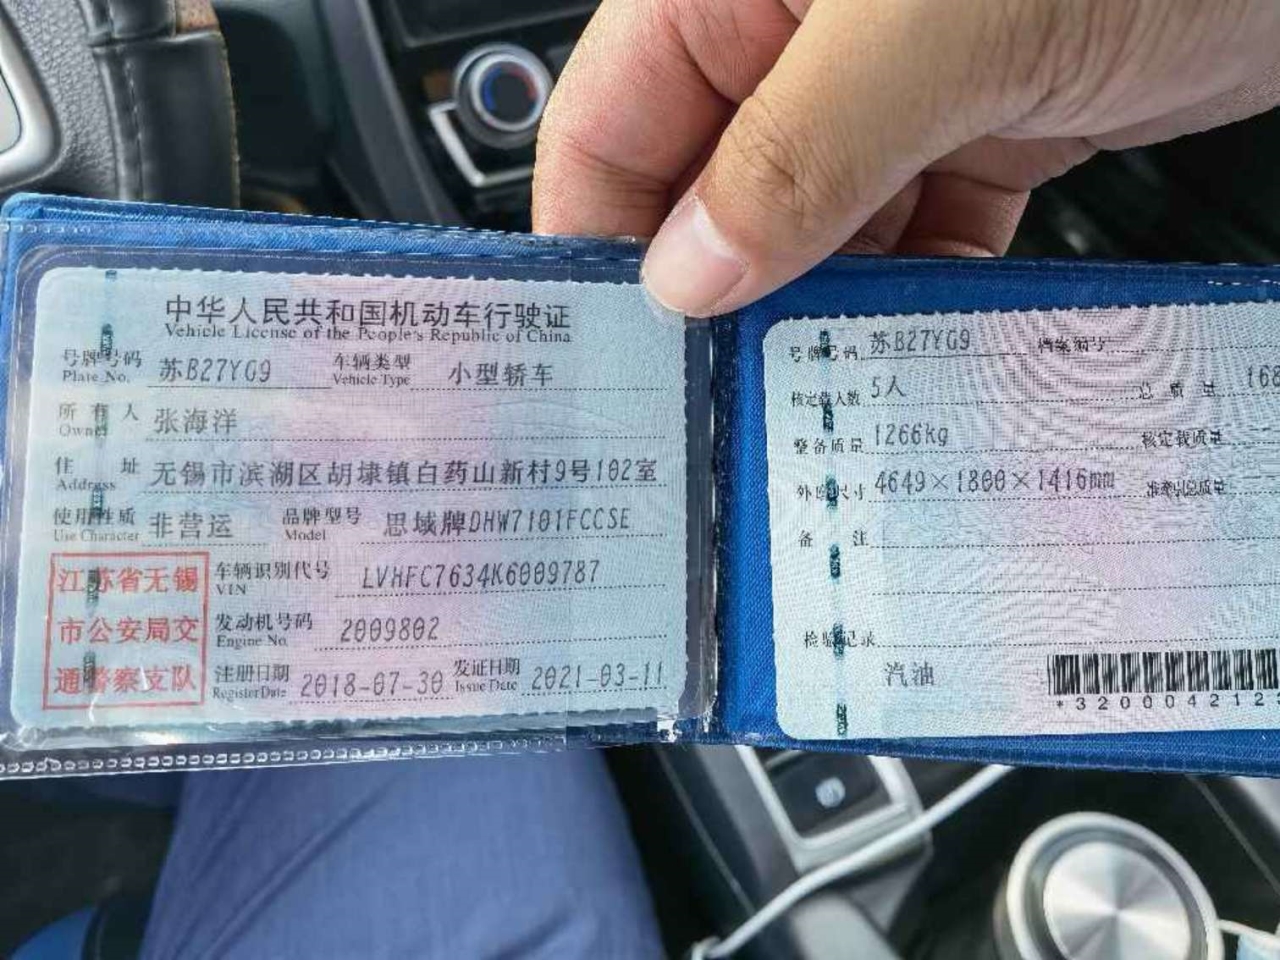 中华人民共和国机动车行驶证
Vehicle License of the People's Republic of China
号牌号码 苏B27YG9 车辆类型 小型轿车
Plate No. Vehicle Type
所有人 张海洋
Owner
住址 无锡市滨湖区胡埭镇白药山新村9号102室
Address
使用性质 非营运 品牌型号 思域牌DHW7101FCCSE
Use Character Model
江苏省无锡
市公安局交
通警察支队
车辆识别代号 LVHFC7634K6009787
VIN
发动机号码 2009802
Engine No.
注册日期 2018-07-30 发证日期 2021-03-11
Register Date Issue Date
号牌号码 苏B27YG9 档案编号
核定载人数 5人 总质量 168
整备质量 1266kg 核定载质量
外廓尺寸 4649×1800×1416mm 准牵引总质量
备注
检验记录
汽油
*320004212